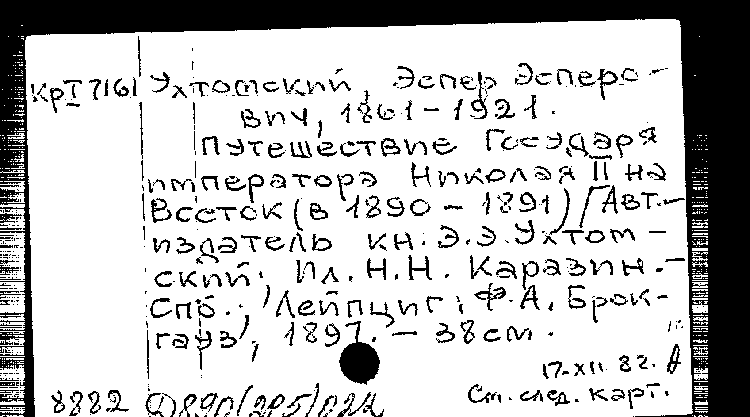 КрI 7161 Ухтомский, Эспер Эсперо-
вич, 1861-1921.
Путешествие Государя
императора Николая II на
Восток (в 1890 - 1891) / Авт.-
издатель кн. Э.Э. Ухтом-
ский; Ил. Н.Н. Каразин. -
Спб.; Лейпциг: Ф.А. Брок-
гауз, 1897. - 38 см.
17-XII 82.
8882 Д890(2Р5)022 См. след. карт.